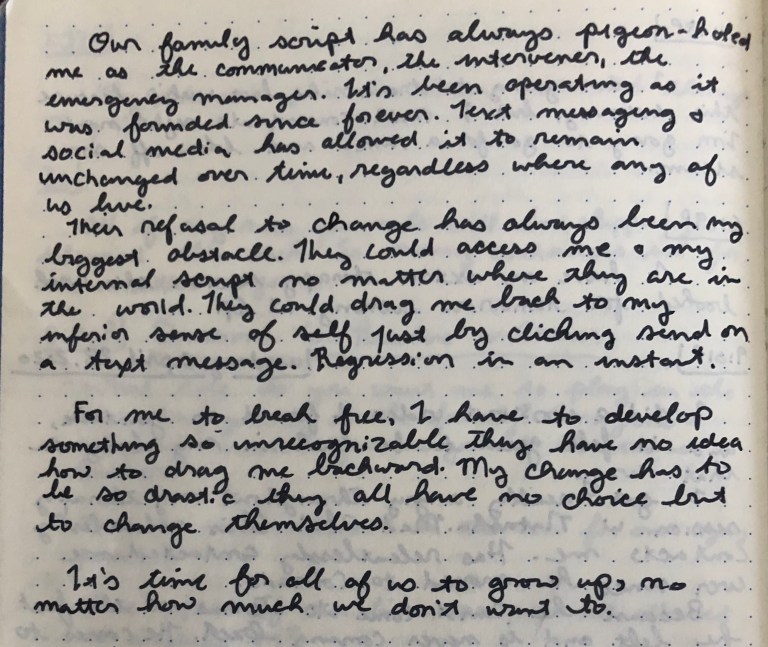 Our family script has always pigeon-holed
me as the communicator, the intervener, the
emergency manager. It's been operating as it
was founded since forever. Text messaging &
social media has allowed it to remain
unchanged over time, regardless where any of
us live.
Their refusal to change has always been my
biggest obstacle. They could access me & my
internal script no matter where they are in
the world. They could drag me back to my
inferior sense of self just by clicking send on
a text message. Regression in an instant.
For me to break free, I have to develop
something so unrecognizable they have no idea
how to drag me backward. My change has to
be so drastic they all have no choice but
to change themselves.
It's time for all of us to grow up, no
matter how much we don't want to.